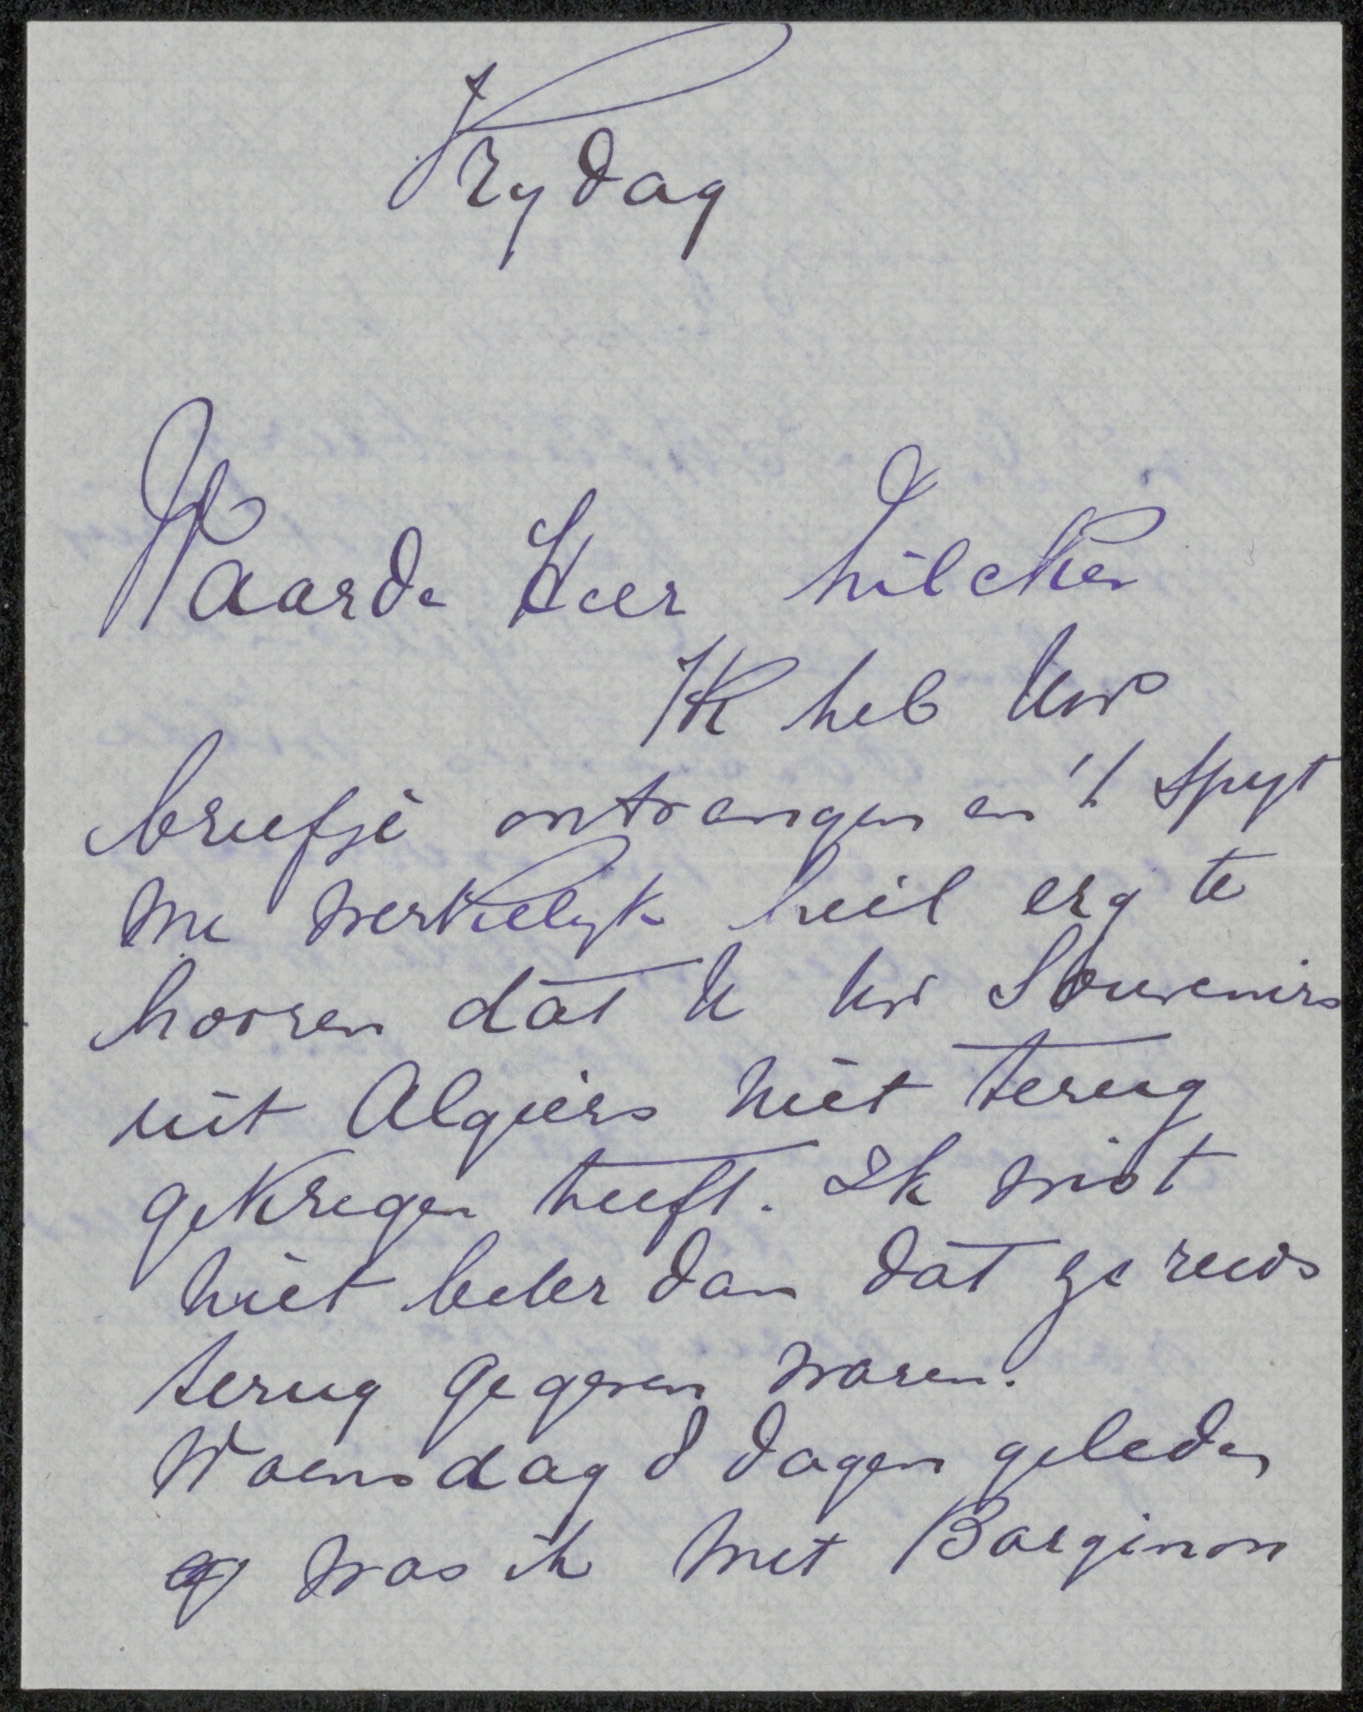 Vrydag
Waarde Heer Zilcken
Ik heb Uw
briefje ontvangen en 't spyt
me werkelyk heel erg te
hooren dat U Uw Souvenirs
uit Algiers niet terug
gekregen heeft. Ik wist
niet beter dan dat ze reeds
terug gegeven waren.
Woensdag 8 dagen geleden
was ik met Barginon